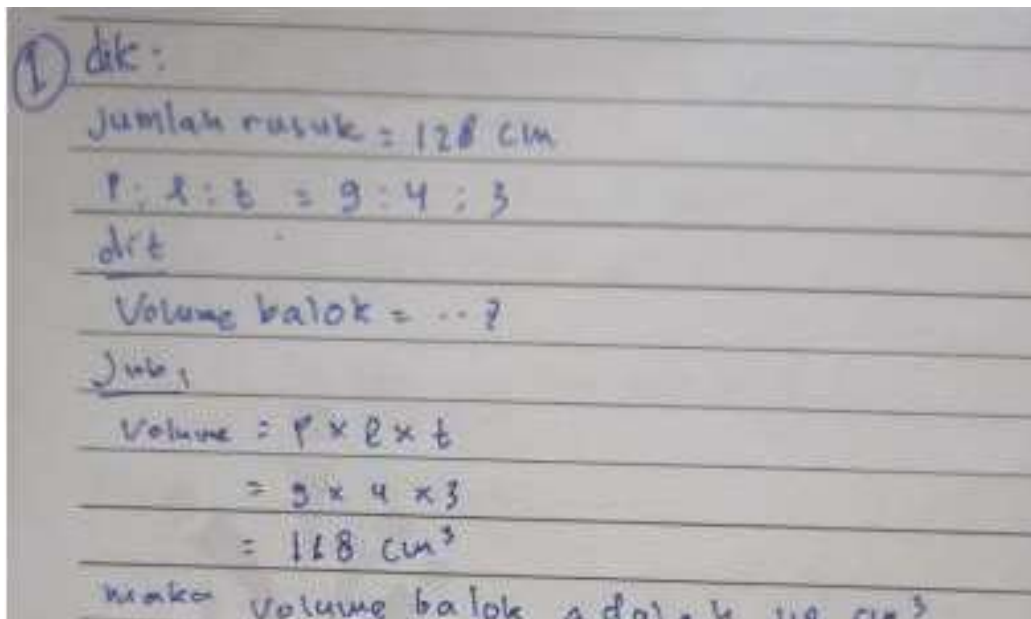 1 dik:
Jumlah rusuk = 128 cm
P : l : t = 9 : 4 : 3
dit
Volume balok = ... ?
Jwb,
Volume = p x l x t
= 9 x 4 x 3
= 118 cm³
maka volume balok adalah 118 cm³